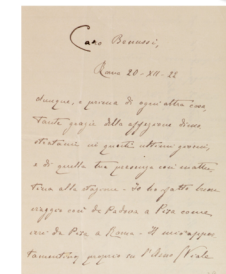 Caro Benussi,
Roma 20-XII-22
dunque, e prima di ogni altra cosa,
tante grazie della affezione dimo
stratami in questi ultimi giorni,
e di quella tua presenza così mattu
tina alla stazione - Io ho fatto buon
viaggio così da Padova a Pisa come
poi da Pisa a Roma - Il mio appar
tamentino proprio su l'